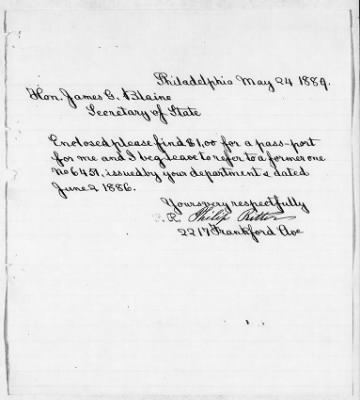 Philadelphia May 24 1889.
Hon. James G. Blaine
Secretary of State
Enclosed please find $1,00 for a pass-port
for me and I beg leave to refer to a former one
No 6451, issued by your department & dated
June 2 1886.
Yours very respectfully
P. R. Philip Ritter
2217 Frankford Ave